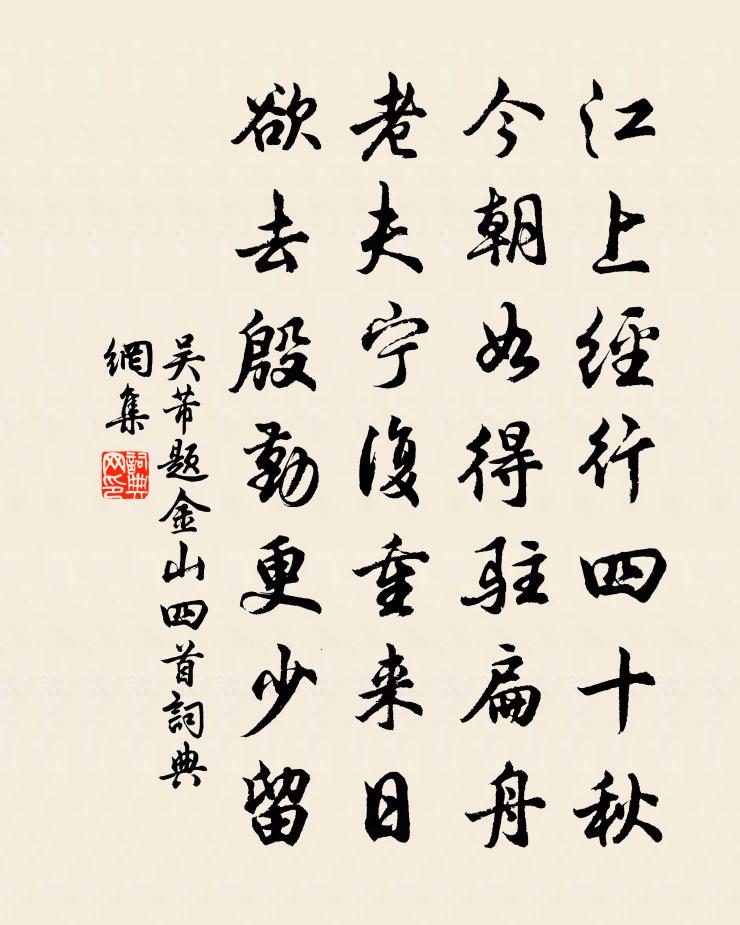 江上經行四十秋
今朝始得駐扁舟
老夫宁復重来日
欲去殷勤更少留
吴芾题金山四首詞典
網集
詞典
网印